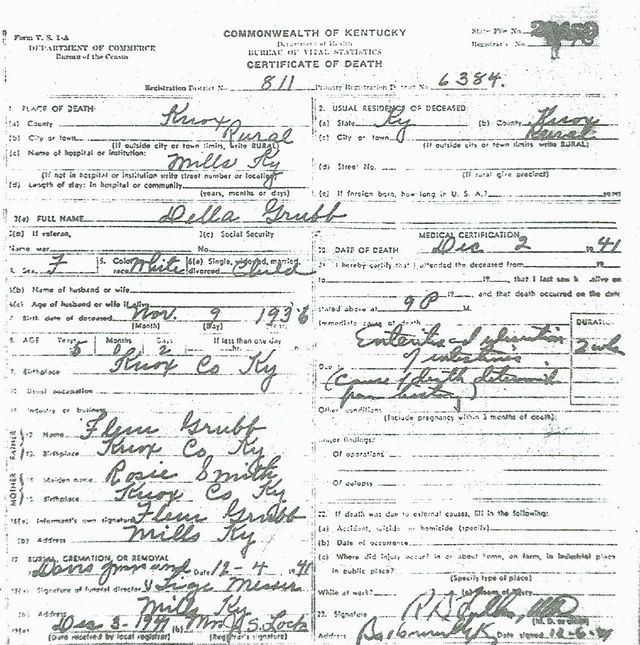 Form V. S. 1-A
DEPARTMENT OF COMMERCE
Bureau of the Census
COMMONWEALTH OF KENTUCKY
Department of Health
BUREAU OF VITAL STATISTICS
CERTIFICATE OF DEATH
State File No.
Registrar's No.
Registration District No. 811 Primary Registration District No. 6384.
1. PLACE OF DEATH:
(a) County Knox
(b) City or town Rural
(If outside city or town limits, write RURAL)
(c) Name of hospital or institution:
Mills Ky
(If not in hospital or institution write street number or location)
(d) Length of stay: In hospital or community
(years, months or days)
2. USUAL RESIDENCE OF DECEASED:
(a) State Ky (b) County Knox
(c) City or town Rural
(If outside city or town limits write RURAL)
(d) Street No.
(If rural give precinct)
(e) If foreign born, how long in U. S. A.? years
3(a) FULL NAME Della Grubb
3(b) If veteran, 3(c) Social Security
Name war No.
4. Sex F 5. Color race White 6(a) Single, widowed, married, divorced Child
6(b) Name of husband or wife
6(c) Age of husband or wife if alive
7. Birth date of deceased Nov. 9 1936
(Month) (Day) (Year)
8. AGE Years Months Days If less than one day
5 0 2 hr. min.
9. Birthplace Knox Co Ky
10. Usual occupation
11. Industry or business
FATHER
12. Name Fleur Grubb
13. Birthplace Knox Co Ky
MOTHER
14. Maiden name Rosie Smith
15. Birthplace Knox Co Ky
16(a) Informant's own signature Fleur Grubb
(b) Address Mills Ky
17. BURIAL, CREMATION, OR REMOVAL
Date 12-4 1941
Signature of funeral director Messer
(b) Address Mills Ky
19(a) Dec 3-1941 (b) Mrs S. Lock
(Date received by local registrar) (Registrar's signature)
MEDICAL CERTIFICATION
20. DATE OF DEATH Dec 2 1941
21. I hereby certify that I attended the deceased from 19
to 19 , that I last saw h alive on
19 , and that death occurred on the date
stated above at 9 P M.
Immediate cause of death
DURATION
Enteritis and ulceration
of intestines
2 wks
Due to
(Cause of death determined
from history)
Other conditions
(Include pregnancy within 3 months of death)
Major findings:
Of operations
Of autopsy
22. If death was due to external causes, fill in the following:
(a) Accident, suicide or homicide (specify)
(b) Date of occurrence
(c) Where did injury occur? In or about home, on farm, in industrial place
in public place?
(Specify type of place)
While at work? (e) Means of injury
23. Signature
(M. D. or other)
Address Date signed 12-6-41